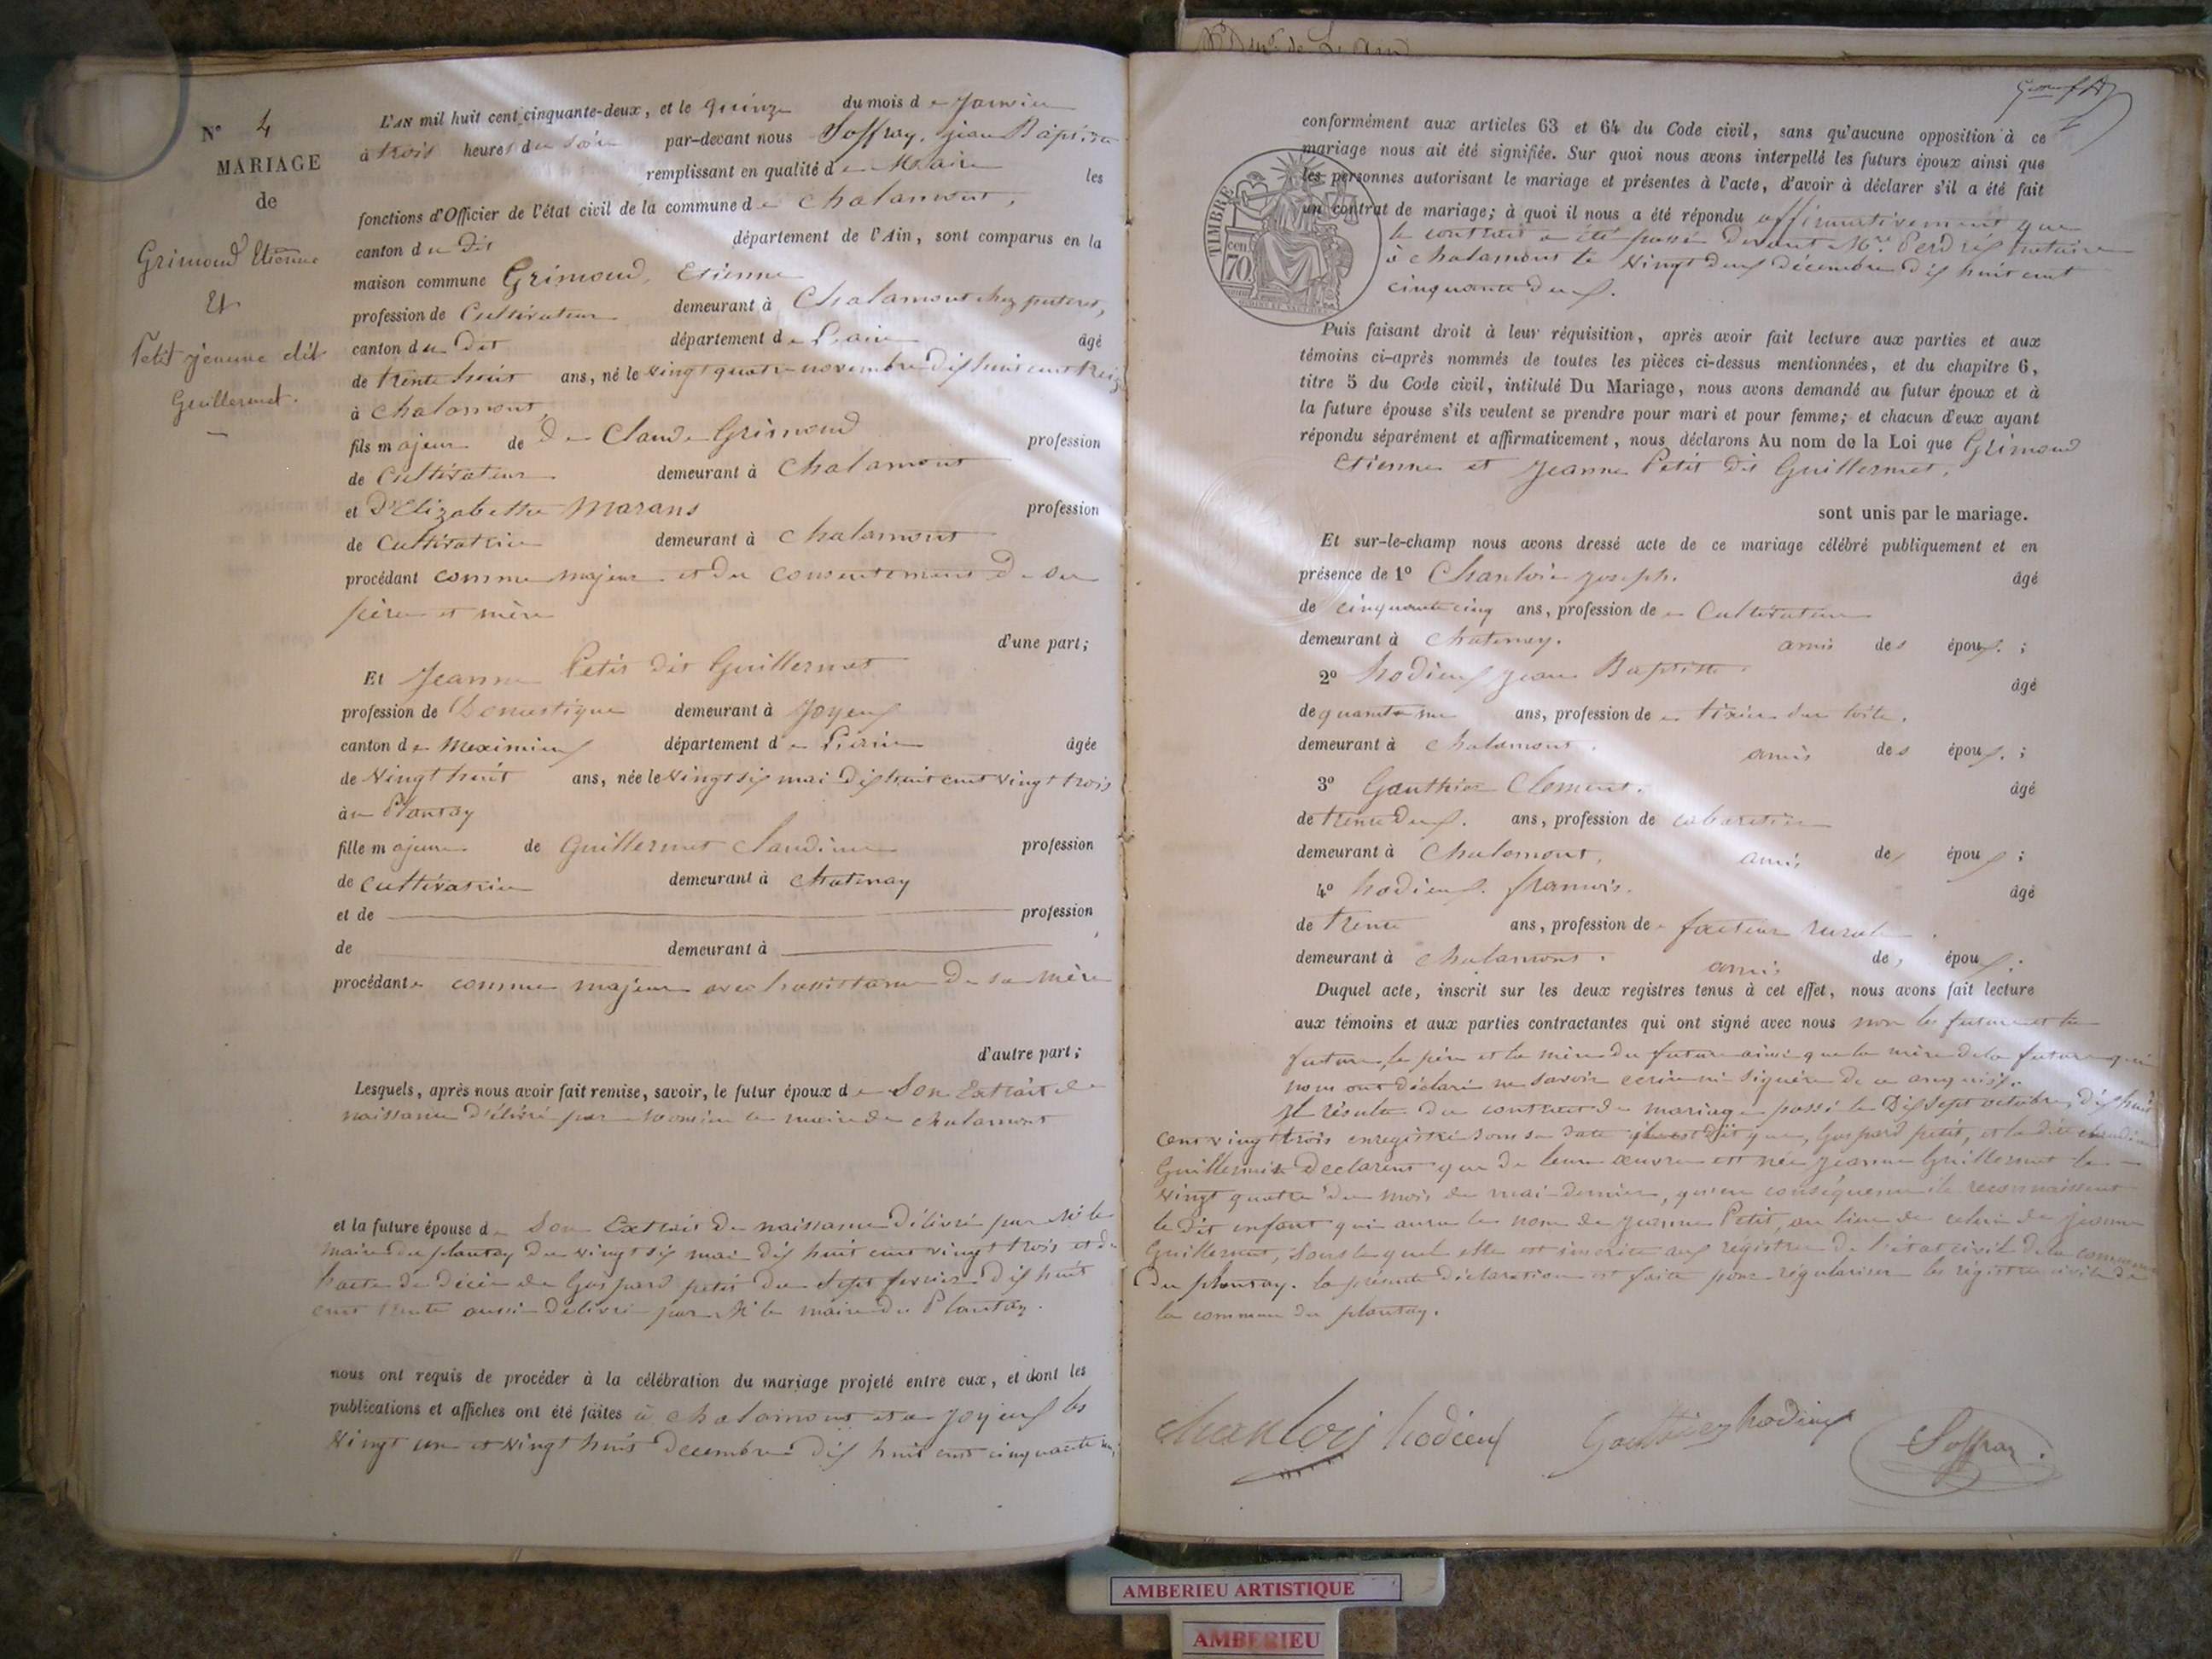 N° 4
MARIAGE
de
Grimoud Etienne
Et
Petit jeanne dit
Guillermet.
L'AN mil huit cent cinquante-deux, et le quinze du mois de Janvier
à trois heures du soir par-devant nous Soffray, jean Baptiste
remplissant en qualité de Maire les
fonctions d'Officier de l'état civil de la commune de Chalamont,
canton du dit département de l'Ain, sont comparus en la
maison commune Grimoud, Etienne
profession de Cultivateur demeurant à Chalamont chez
canton du dit département de L'ain âgé
de trente huit ans, né le vingt quatre novembre dix huit cent treize
à Chalamont,
fils majeur de De Claude Grimoud profession
de Cultivateur demeurant à Chalamont
et D'Elizabethe Marans profession
de Cultivatrice demeurant à Chalamont
procédant comme majeur et du consentement de ses
père et mère
d'une part;
Et Jeanne Petit dit Guillermet
profession de Domestique demeurant à Joyeux
canton de Meximieux département de L'ain âgée
de vingt huit ans, née le vingt six mai dix huit cent vingt trois
au Plantay
fille majeure de Guillermet Claudine profession
de cultivatrice demeurant à Chatenay
et de profession
de demeurant à
procédante comme majeure avec l'assistance de sa mère
d'autre part;
Lesquels, après nous avoir fait remise, savoir, le futur époux de Son Extrait de
naissance délivré par le maire de chalamont
et la future épouse de Son Extrait de naissance délivré par Mr le
maire du plantay du vingt six mai dix huit cent vingt trois et de
l'acte de décès de Gaspard petit du Sept fevrier dix huit
cent trente aussi délivré par Mr le maire du Plantay.
nous ont requis de procéder à la célébration du mariage projeté entre eux, et dont les
publications et affiches ont été faites à Chalamont et a joyeux les
vingt un et vingt huit decembre dix huit cent cinquante un,
conformément aux articles 63 et 64 du Code civil, sans qu'aucune opposition à ce
mariage nous ait été signifiée. Sur quoi nous avons interpellé les futurs époux ainsi que
les personnes autorisant le mariage et présentes à l'acte, d'avoir à déclarer s'il a été fait
un contrat de mariage; à quoi il nous a été répondu affirmativement que
le contrat a été passé devant Mre Perdrix notaire
à chalamont le vingt deux décembre dix huit cent
cinquante deux.
TIMBRE
cen
70
Puis faisant droit à leur réquisition, après avoir fait lecture aux parties et aux
témoins ci-après nommés de toutes les pièces ci-dessus mentionnées, et du chapitre 6,
titre 5 du Code civil, intitulé Du Mariage, nous avons demandé au futur époux et à
la future épouse s'ils veulent se prendre pour mari et pour femme; et chacun d'eux ayant
répondu séparément et affirmativement, nous déclarons Au nom de la Loi que Grimoud
Etienne et Jeanne Petit dit Guillermet.
sont unis par le mariage.
Et sur-le-champ nous avons dressé acte de ce mariage célébré publiquement et en
présence de 1° Chanloix joseph. âgé
de cinquante cinq ans, profession de Cultivateur
demeurant à Chatenay. amis des époux. ;
2° hodieux jean Baptiste. âgé
de quarante ans, profession de tixier de toile.
demeurant à Chalamont. amis des époux. ;
3° Gauthier Clement. âgé
de trente deux. ans, profession de cabaretier
demeurant à Chalamont, amis des époux ;
4° hodieux. francois. âgé
de trente ans, profession de facteur rural
demeurant à Chalamont. amis des époux ;
Duquel acte, inscrit sur les deux registres tenus à cet effet, nous avons fait lecture
aux témoins et aux parties contractantes qui ont signé avec nous non le futur et la
future, le père et la mère du futur ainsi que la mère de la future qui
nous ont déclaré ne savoir ecrire ni signer de ce enquis.
Il résulte du contrat de mariage passé le Dix sept octobre, dix huit
cent vingt trois enregistré sous sa date que, Gaspard petit, et la dite claudine
Guillermet Declarent que de leur œuvre est née jeanne Guillermet le
vingt quatre du mois de mai dernier, qu'en conséquence ils reconnaissent
le dit enfant qui aura le nom de jeanne Petit, au lieu de celui de jeanne
Guillermet, sous lequel elle est inscrite aux régistres de l'état civil de la commune
du plantay. la présente déclaration est faite pour régulariser les régistres civils de
la commune du plantay.
Chanloix hodieux Gauthier hodieux Soffray
AMBERIEU ARTISTIQUE
AMBERIEU